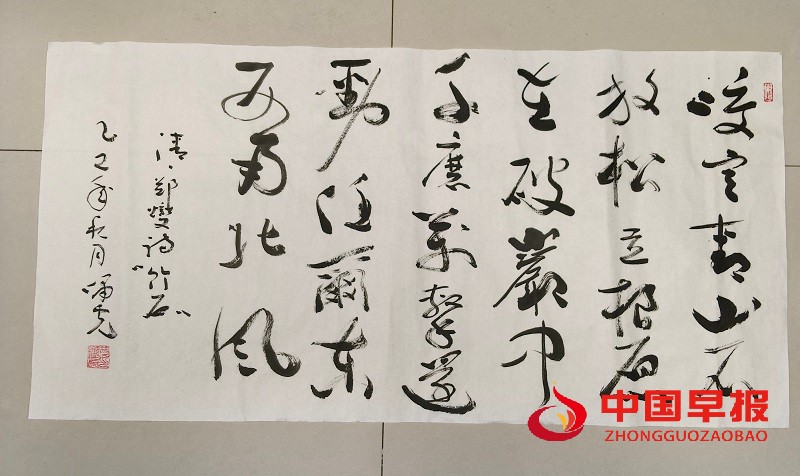 咬定青山不
放松立根原
在破巖中
千磨萬擊還
勁任爾東
西南北风
清·郑燮诗"竹石"
乙巳年秋月
中国早报
ZHONGGUOZAOBAO